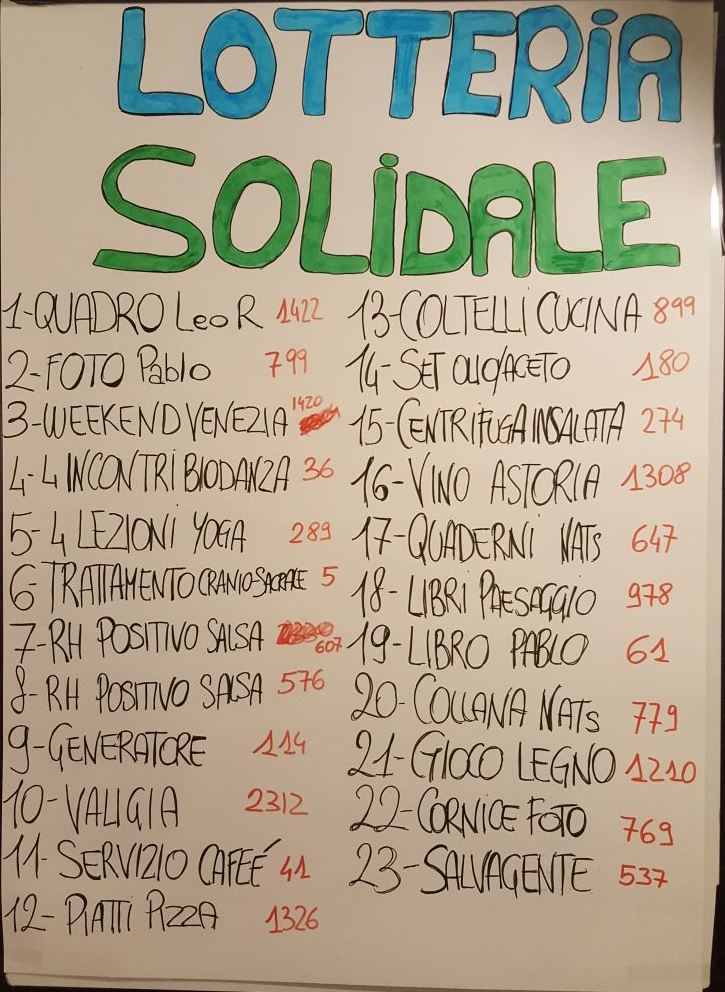 LOTTERiA
SOLiDALE
1-QUADRO LeoR 1422
2-FOTO Pablo 799
3-WEEKEND VENEZIA 1420
4-4 INCONTRI BIODANZA 36
5-4 LEZIONI YOGA 289
6-TRATTAMENTO CRANIO-SACRALE 5
7-RH POSITIVO SALSA 607
8-RH POSITIVO SALSA 576
9-GENERATORE 114
10-VALIGIA 2312
11-SERVIZIO CAFEÉ 41
12-PIATTI PIZZA 1326
13-COLTELLI CUCINA 899
14-SET OLIO/ACETO 180
15-CENTRIFUGA INSALATA 274
16-VINO ASTORIA 1308
17-QUADERNI NATs 647
18-LIBRI PAESAGGIO 978
19-LIBRO PABLO 61
20-COLLANA NATs 779
21-GIOCO LEGNO 1210
22-CORNICE FOTO 769
23-SALVAGENTE 537